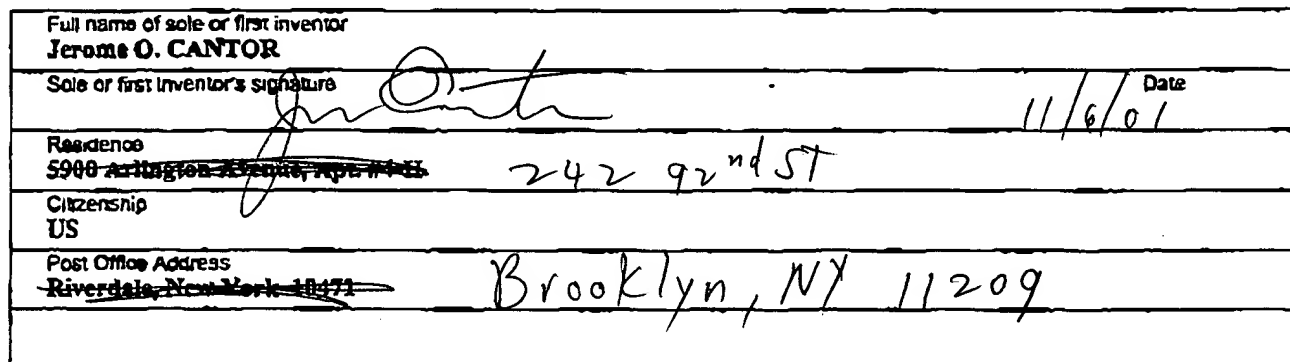 Full name of sole or first inventor
Jerome O. CANTOR
Sole or first inventor's signature
Date
11/6/01
Residence
5900 Arlington Avenue, Apt. #4-H 242 92nd ST
Citizenship
US
Post Office Address
Riverdale, New York 10471 Brooklyn, NY 11209